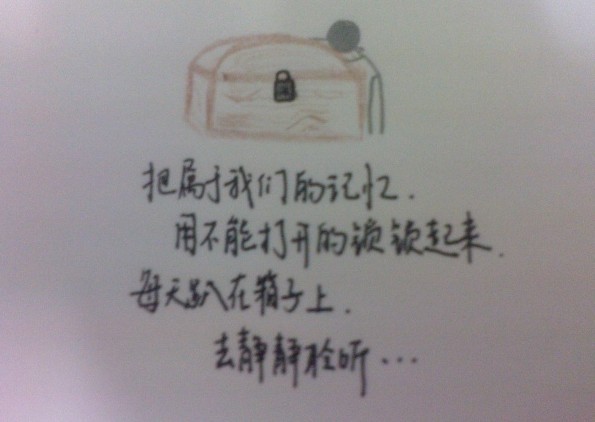 把属于我们的记忆.
用不能打开的锁锁起来.
每天趴在箱子上.
去静静聆听...